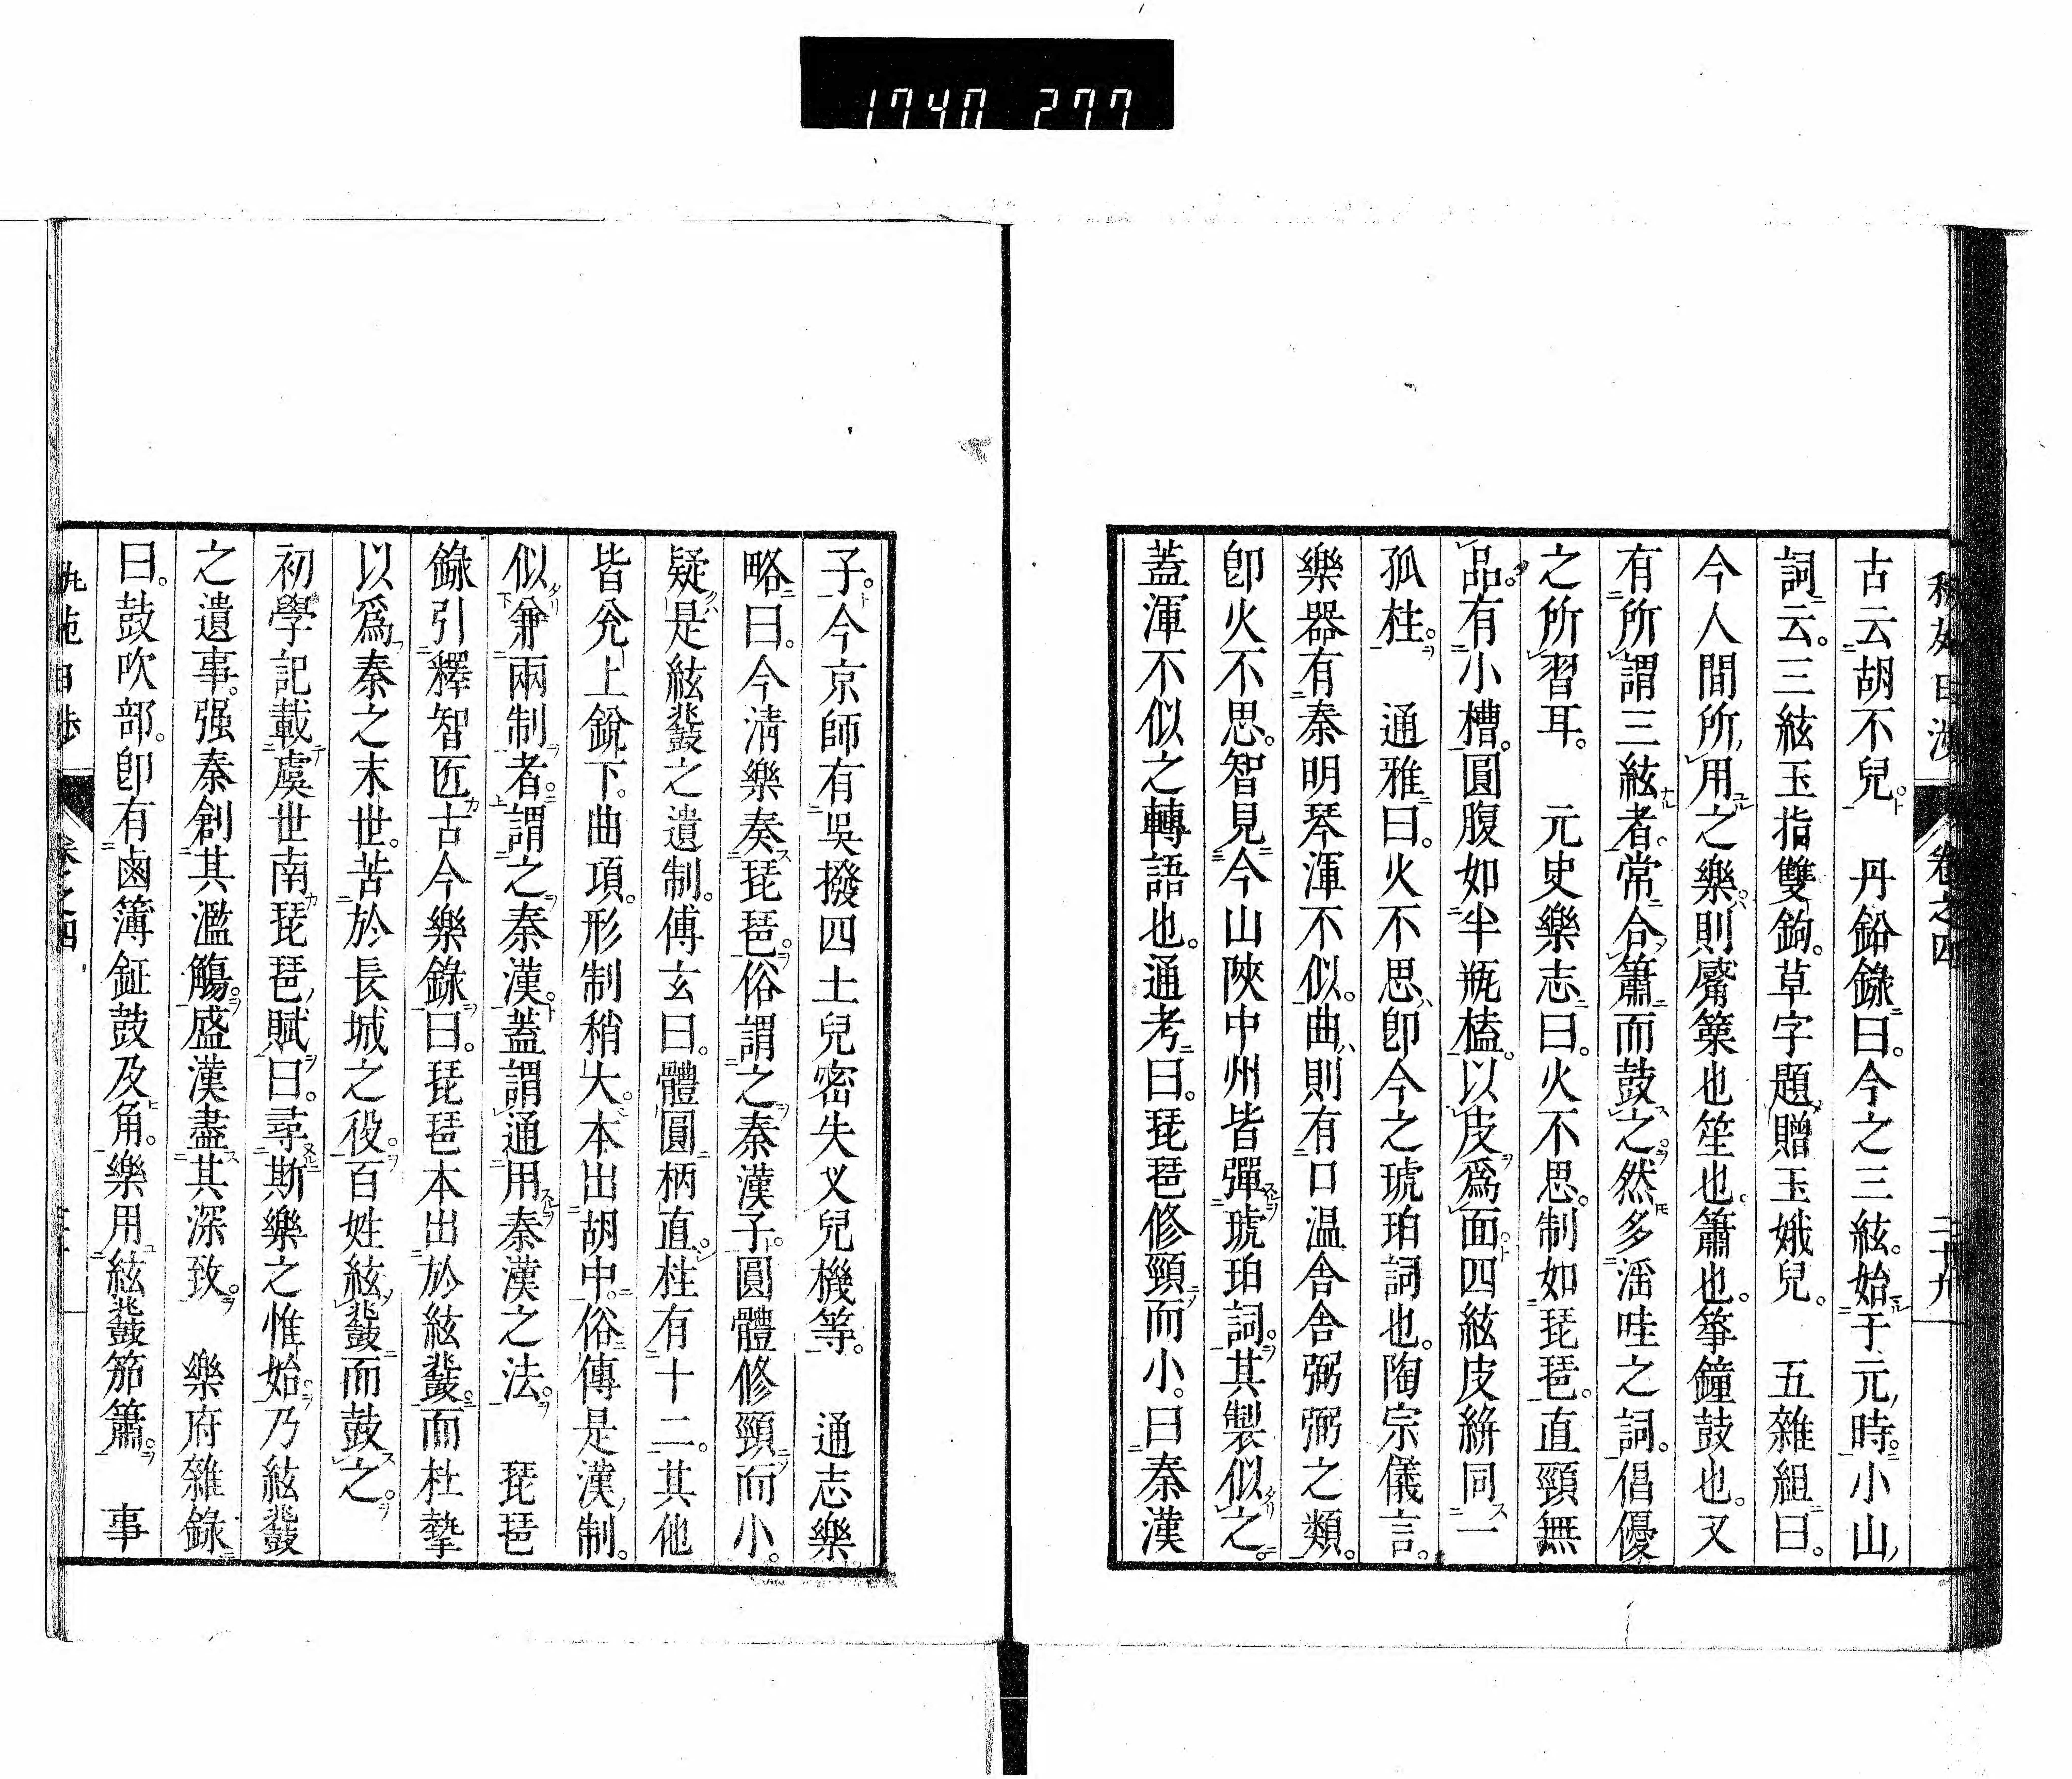 1740 277
卷之四
二十九
古云胡不兒 丹鉛錄曰今之三絃始于元時小山
詞云三絃玉指雙鉤草字題贈玉娥兒 五雜組曰
今人間所用之樂則觱篥也笙也簫也箏鐘鼓也又
有所謂三絃者常合簫而鼓之然多淫哇之詞倡優
之所習耳 元史樂志曰火不思制如琵琶直頸無
品有小槽圓腹如半瓶榼以皮爲面四絃皮絣同一
孤柱 通雅曰火不思卽今之琥珀詞也陶宗儀言
樂器有秦明琴渾不似曲則有口温舍舍弼弼之類
卽火不思智見今山陝中州皆彈琥珀詞其製似之
蓋渾不似之轉語也通考曰琵琶修頸而小曰秦漢
子今京師有吳撥四土兒密失乂兒機等 通志樂
略曰今淸樂奏琵琶俗謂之秦漢子圓體修頸而小
疑是絃鼗之遺制傅玄曰體圓柄直柱有十二其他
皆兊上銳下曲項形制稍大本出胡中俗傳是漢制
似兼兩制者謂之秦漢蓋謂通用秦漢之法 琵琶
錄引釋智匠古今樂錄曰琵琶本出於絃鼗而杜摯
以爲秦之末世苦於長城之役百姓絃鼗而鼓之
初學記載虞世南琵琶賦曰尋斯樂之惟始乃絃鼗
之遺事强秦創其濫觴盛漢盡其深致 樂府雜錄
曰鼓吹部卽有鹵簿鉦鼓及角樂用絃鼗笳簫 事